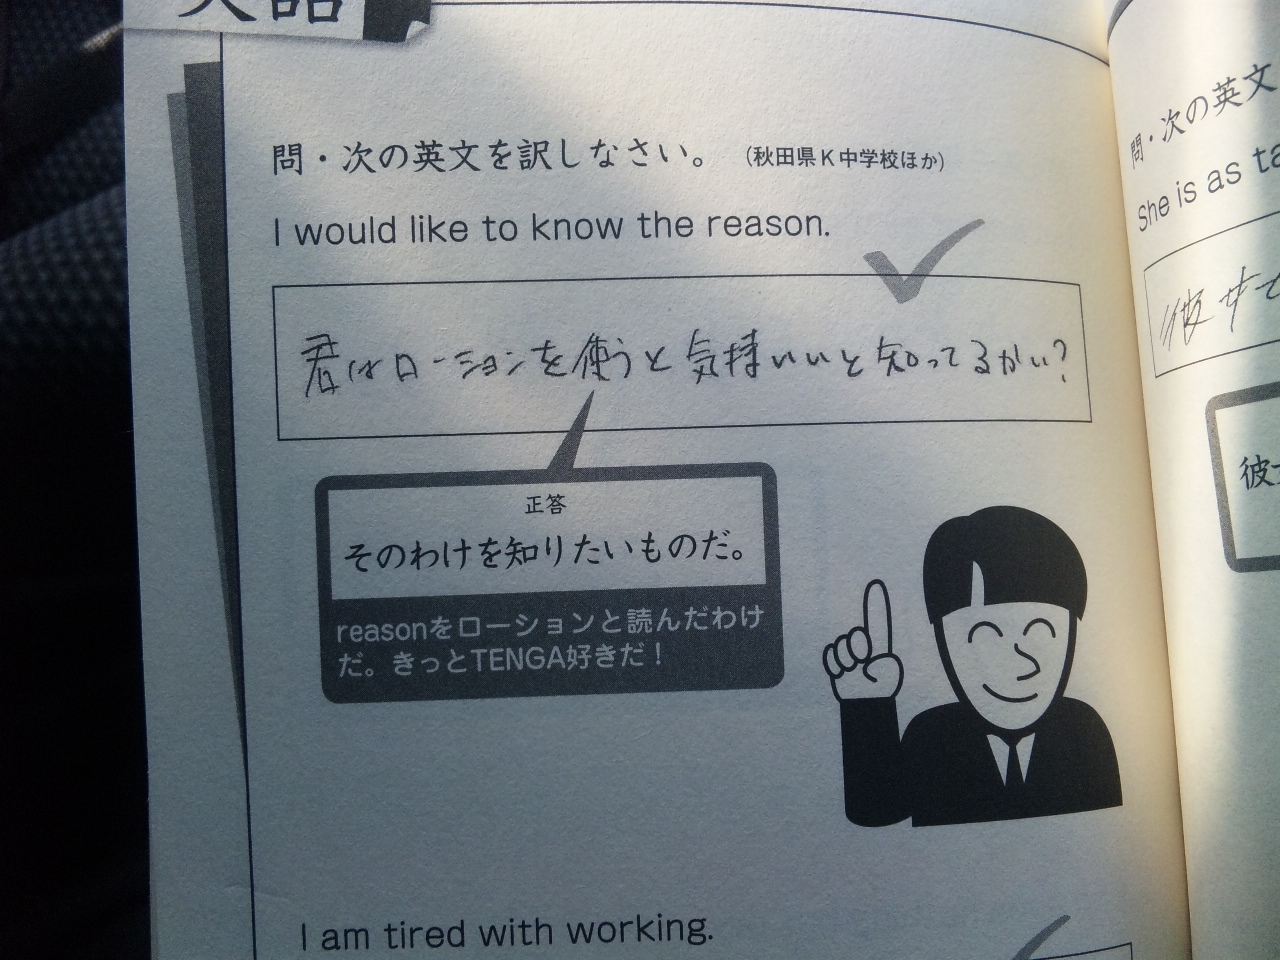 英語
問・次の英文を訳しなさい。（秋田県K中学校ほか）
I would like to know the reason.
君はローションを使うと気持いいと知ってるかい?
正答
そのわけを知りたいものだ。
reasonをローションと読んだわけ
だ。きっとTENGA好きだ！
I am tired with working.
問・次の英文
She is as ta
彼女
彼女